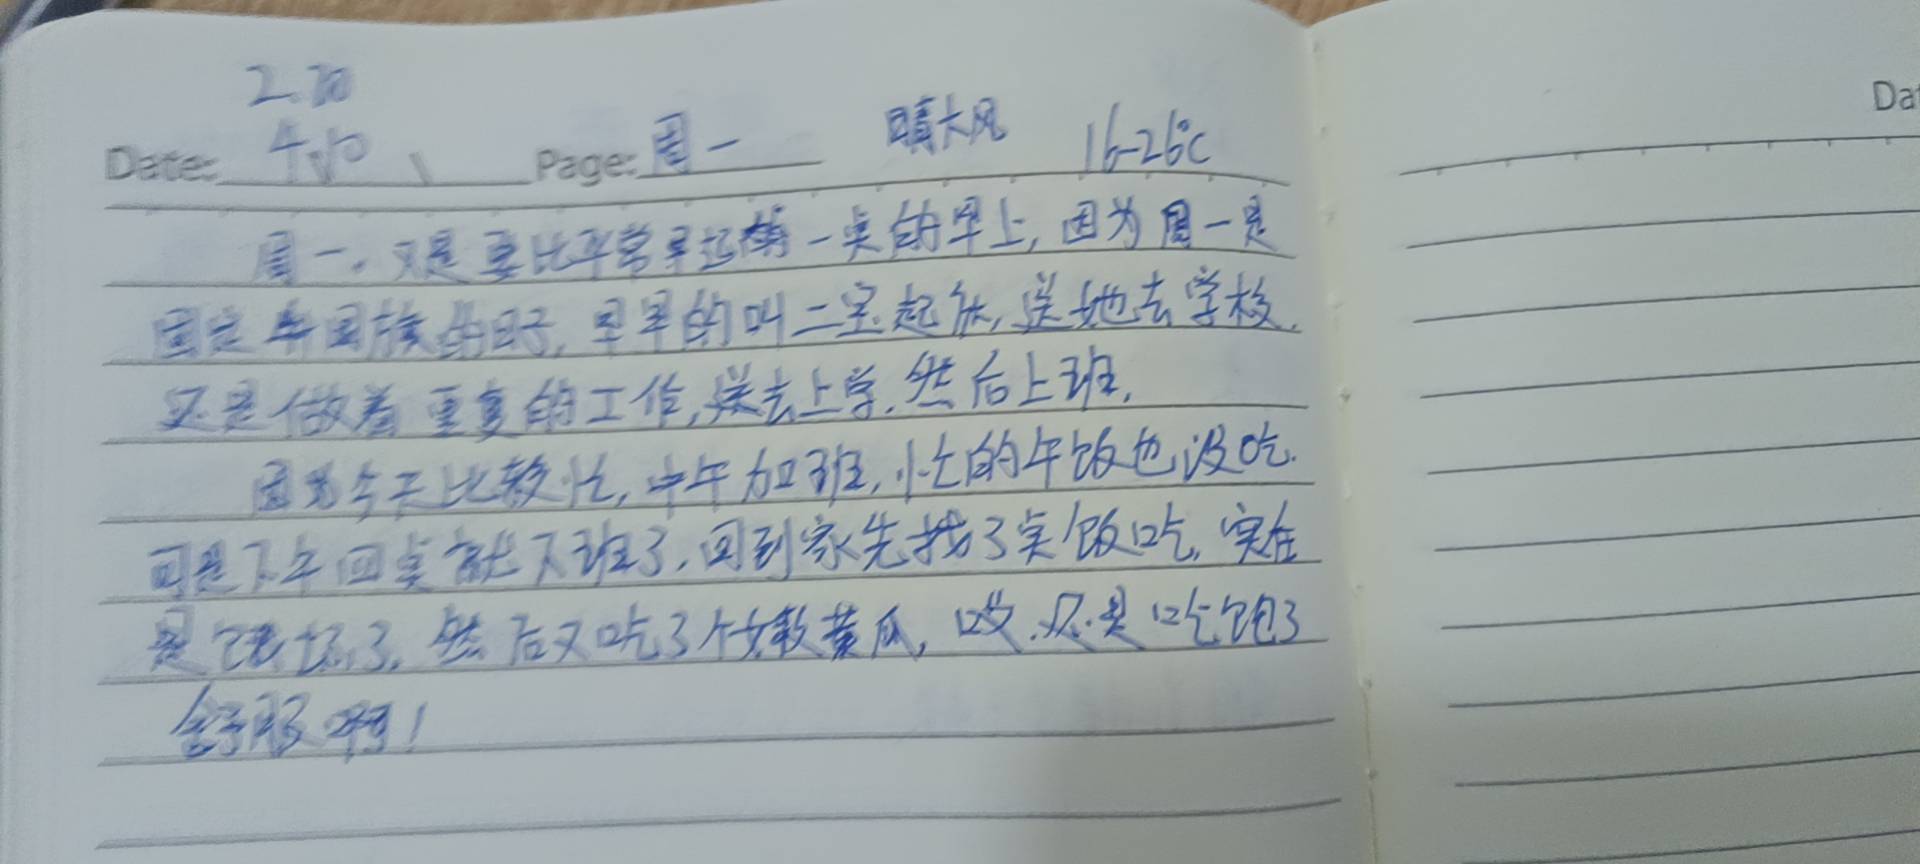 Date: Page: 周一 晴大风 16-26℃
周一。又是要比平常早起 一点的早上, 因为周一是
固定升国旗的日子, 早早的叫二宝起床, 送她去学校.
还是做着重复的工作, 送去上学. 然后上班.
因为今天比较忙, 中午加班, 忙的午饭也没吃.
可是下午四点就下班了. 回到家先找了点饭吃. 实在
是饿坏了. 然后又吃了个嫩黄瓜, 哎. 还是吃饱了
舒服啊!
Da